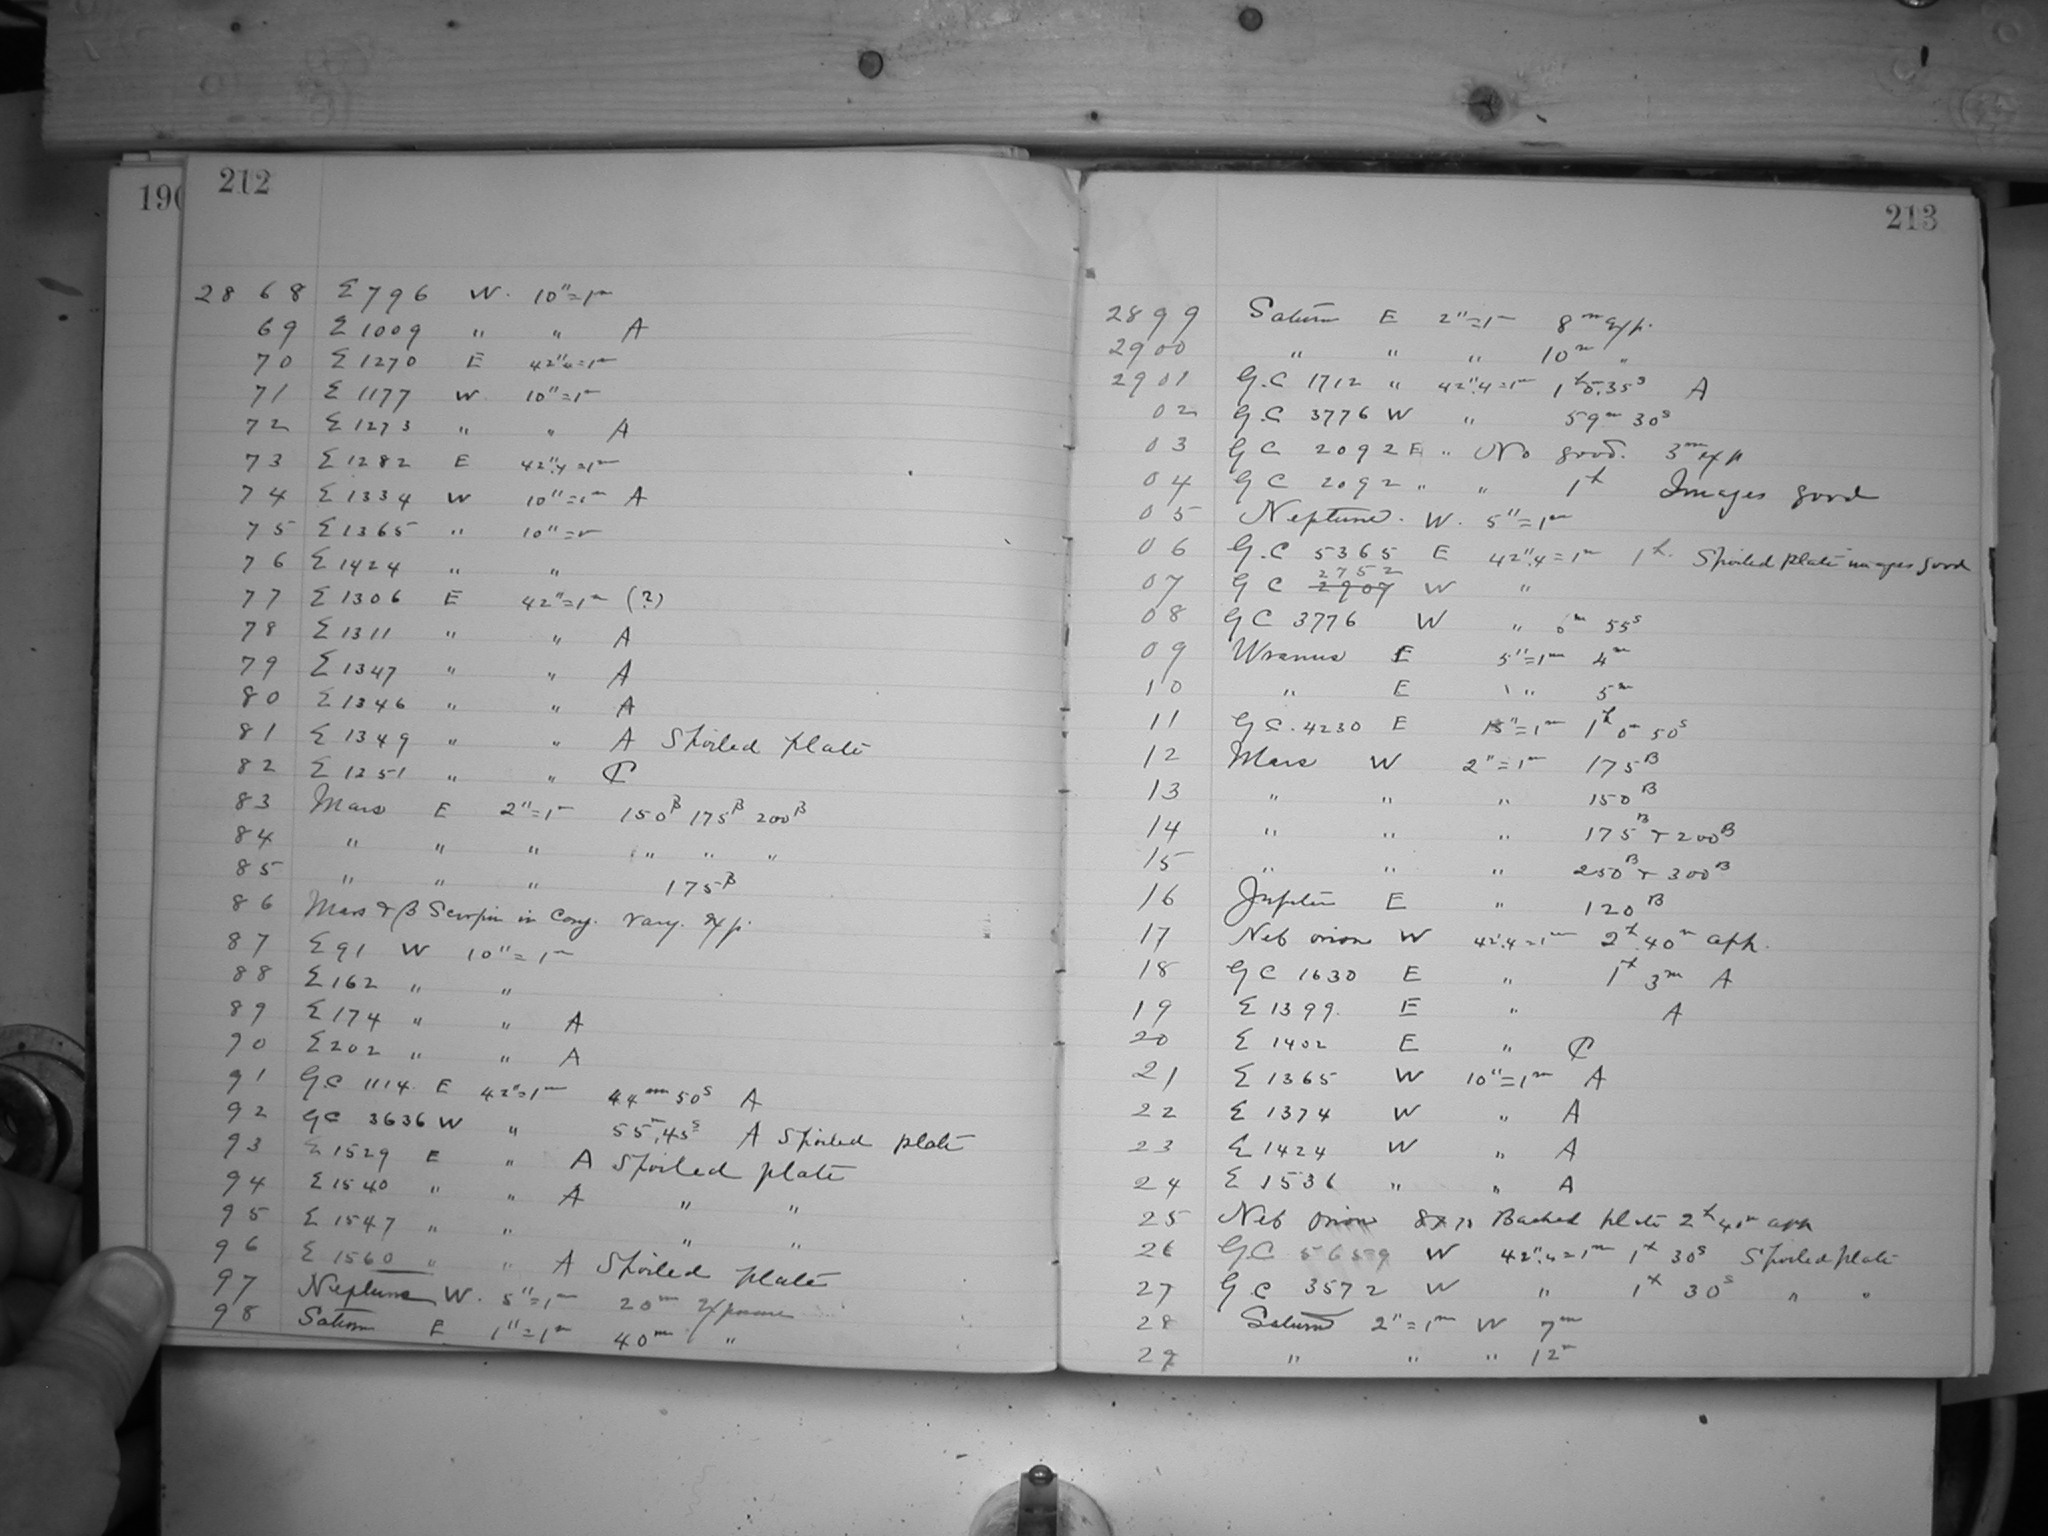 190
212
2868 Σ 796 W. 10"=1m
69 Σ 1009 " " A
70 Σ 1270 E 42".4=1m
71 Σ 1177 W 10"=1m
72 Σ 1273 " " A
73 Σ 1282 E 42".4=1m
74 Σ 1334 W 10"=1m A
75 Σ 1365 " 10"=
76 Σ 1424 " "
77 Σ 1306 E 42"=1m (?)
78 Σ 1311 " " A
79 Σ 1347 " " A
80 Σ 1346 " " A
81 Σ 1349 " " A Spoiled plate
82 Σ 1251 " " ₵
83 Mars E 2"=1m 150B 175B 200B
84 " " " " " "
85 " " " 175B
86 Mars & β Scorpii in Conj. vary. exp.
87 Σ 91 W 10"=1m
88 Σ 162 " "
89 Σ 174 " " A
90 Σ 202 " " A
91 G.C 1114. E 42"=1m 44m 50s A
92 GC 3636 W " 55m.45s A Spoiled plate
93 Σ 1529 E " A Spoiled plate
94 Σ 1540 " " A " "
95 Σ 1547 " " " "
96 Σ 1560 " " A Spoiled plate
97 Neptune W. 5"=1m 20m Exposure
98 Saturn E 1"=1m 40m "
213
2899 Saturn E 2"=1m 8m exp.
2900 " " " 10m "
2901 G.C 1712 " 42".4=1m 1h 5.35s A
02 G.C 3776 W " 59m 30s
03 GC 2092 E " No good. 3m exp
04 GC 2092 " " 1h Images good
05 Neptune. W. 5"=1m
06 G.C 5365 E 42".4=1m 1h. Spoiled plate images good
07 GC 2907 2752 W "
08 GC 3776 W " 6m 55s
09 Uranus E 5"=1m 4m
10 " E " 5m
11 G.C. 4230 E "=1m 1h 0m 50s
12 Mars W 2"=1m 175B
13 " " " 150B
14 " " " 175B & 200B
15 " " " 250B & 300B
16 Jupiter E " 120B
17 Neb orion W 42".4=1m 2h.40m aph.
18 GC 1630 E " 1h 3m A
19 Σ 1399. E " A
20 Σ 1402 E " ₵
21 Σ 1365 W 10"=1m A
22 Σ 1374 W " A
23 Σ 1424 W " A
24 Σ 1536 " " A
25 Neb Orion Backed plate 2h 40m aph
26 G.C W 42".4=1m 1h 30s Spoiled plate
27 G C 3572 W " 1h 30s " "
28 Saturn 2"=1m W 7m
29 " " " 12m